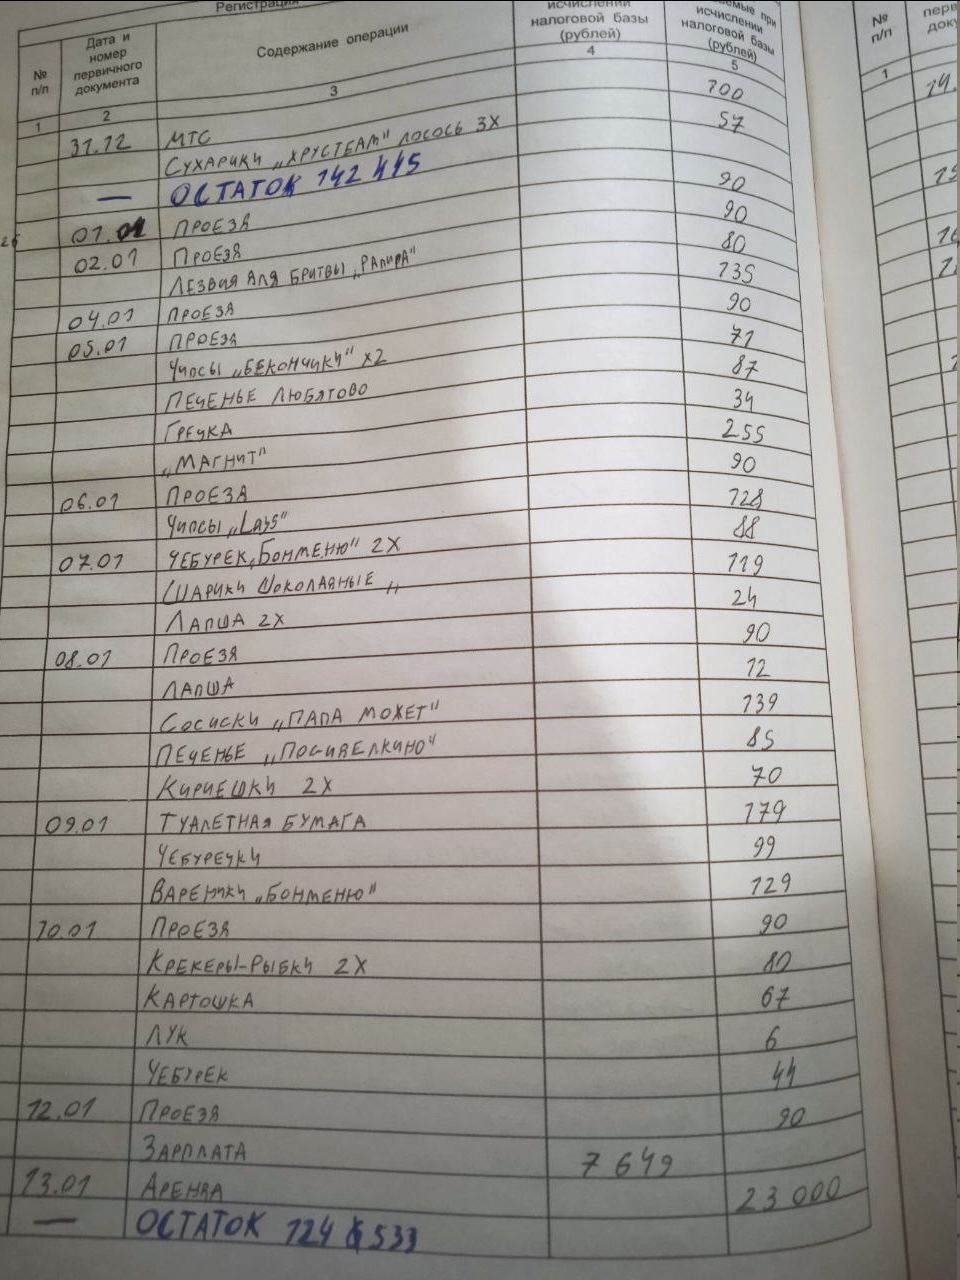 Регистрация
№ п/п
Дата и номер первичного документа
Содержание операции
исчислении налоговой базы (рублей)
исчислении налоговой базы (рублей)
1 2 3 4 5
31.12 МТС 700
Сухарики „Хрустеам" лосось 3х 57
— ОСТАТОК 142 445
01.01 Проезд 90
02.01 Проезд 90
Лезвия для бритвы „Рапира" 80
04.01 Проезд 135
05.01 Проезд 90
Чипсы „Бекончики" х2 71
Печенье Любятово 87
Гречка 34
„Магнит" 255
06.01 Проезд 90
Чипсы „Lays" 128
07.01 Чебурек „Бонменю" 2х 88
Шарики шоколадные „ 119
Лапша 2х 24
08.01 Проезд 90
Лапша 12
Сосиски „Папа может" 139
Печенье „Посиделкино" 85
Кириешки 2х 70
09.01 Туалетная бумага 179
Чебуречки 99
Вареники „Бонменю" 129
10.01 Проезд 90
Крекеры-рыбки 2х 80
Картошка 67
Лук 6
Чебурек 44
12.01 Проезд 90
Зарплата 7 649
13.01 Аренда 23 000
— ОСТАТОК 124 533
№ п/п
1